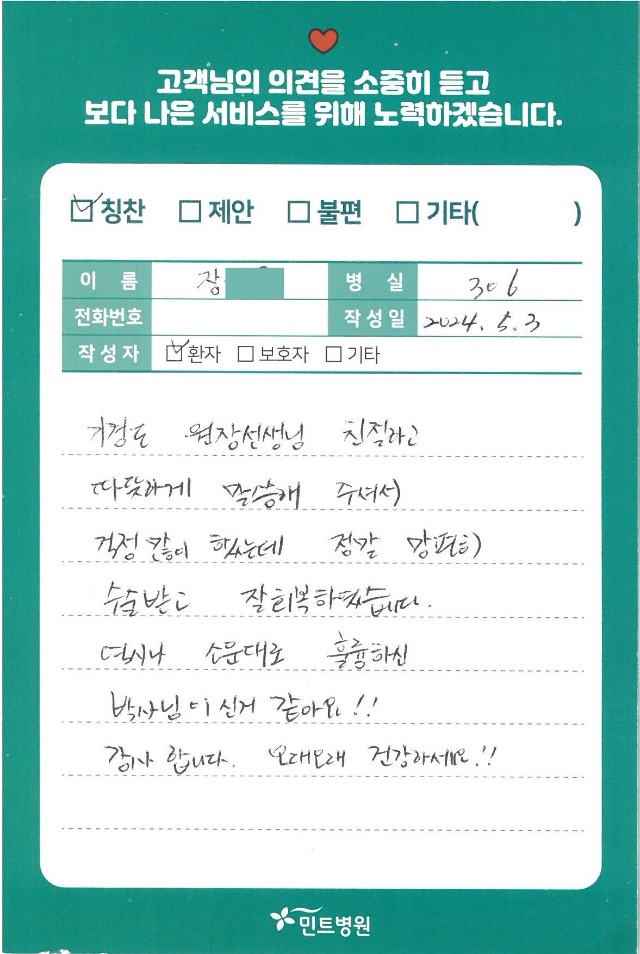 고객님의 의견을 소중히 듣고
보다 나은 서비스를 위해 노력하겠습니다.
칭찬 제안 불편 기타( )
이 름 장 병 실 306
전화번호 작성일 2024. 5. 3
작성자 환자 보호자 기타
원장선생님 친절하고
따뜻하게 말씀해 주셔서
걱정 많이 했는데 정말 맘편히
수술받고 잘회복하였습니다.
역시나 소문대로 훌륭하신
박사님 이신거 같아요!!
감사 합니다. 오래오래 건강하세요!!
민트병원